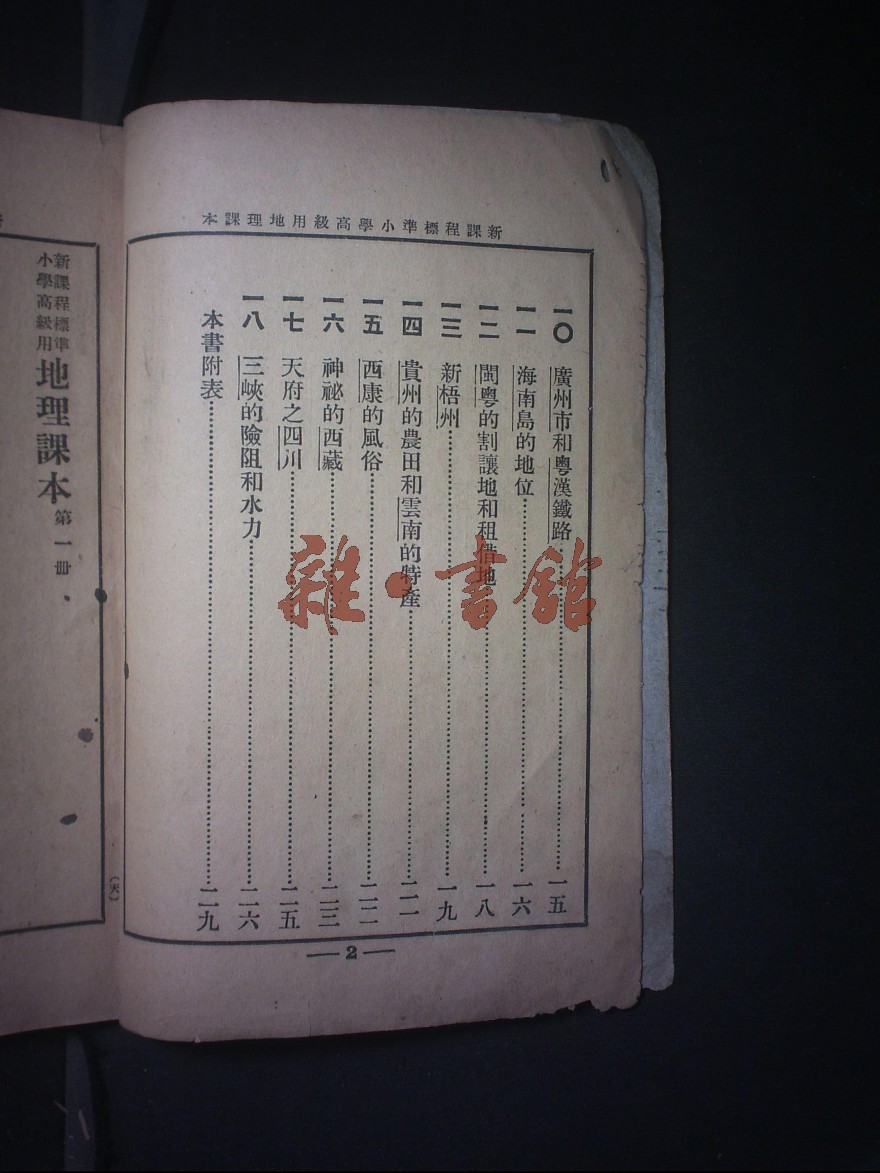 新課程標準小學高級用地理課本
一〇 廣州市和粵漢鐵路……一五
一一 海南島的地位……一六
一二 閩粵的割讓地和租借地……一八
一三 新梧州……一九
一四 貴州的農田和雲南的特產……二一
一五 西康的風俗……二二
一六 神祕的西藏……二三
一七 天府之四川……二五
一八 三峽的險阻和水力……二六
本書附表……二九
— 2 —
新課程標準
小學高級用
地理課本 第一冊
雜·書館